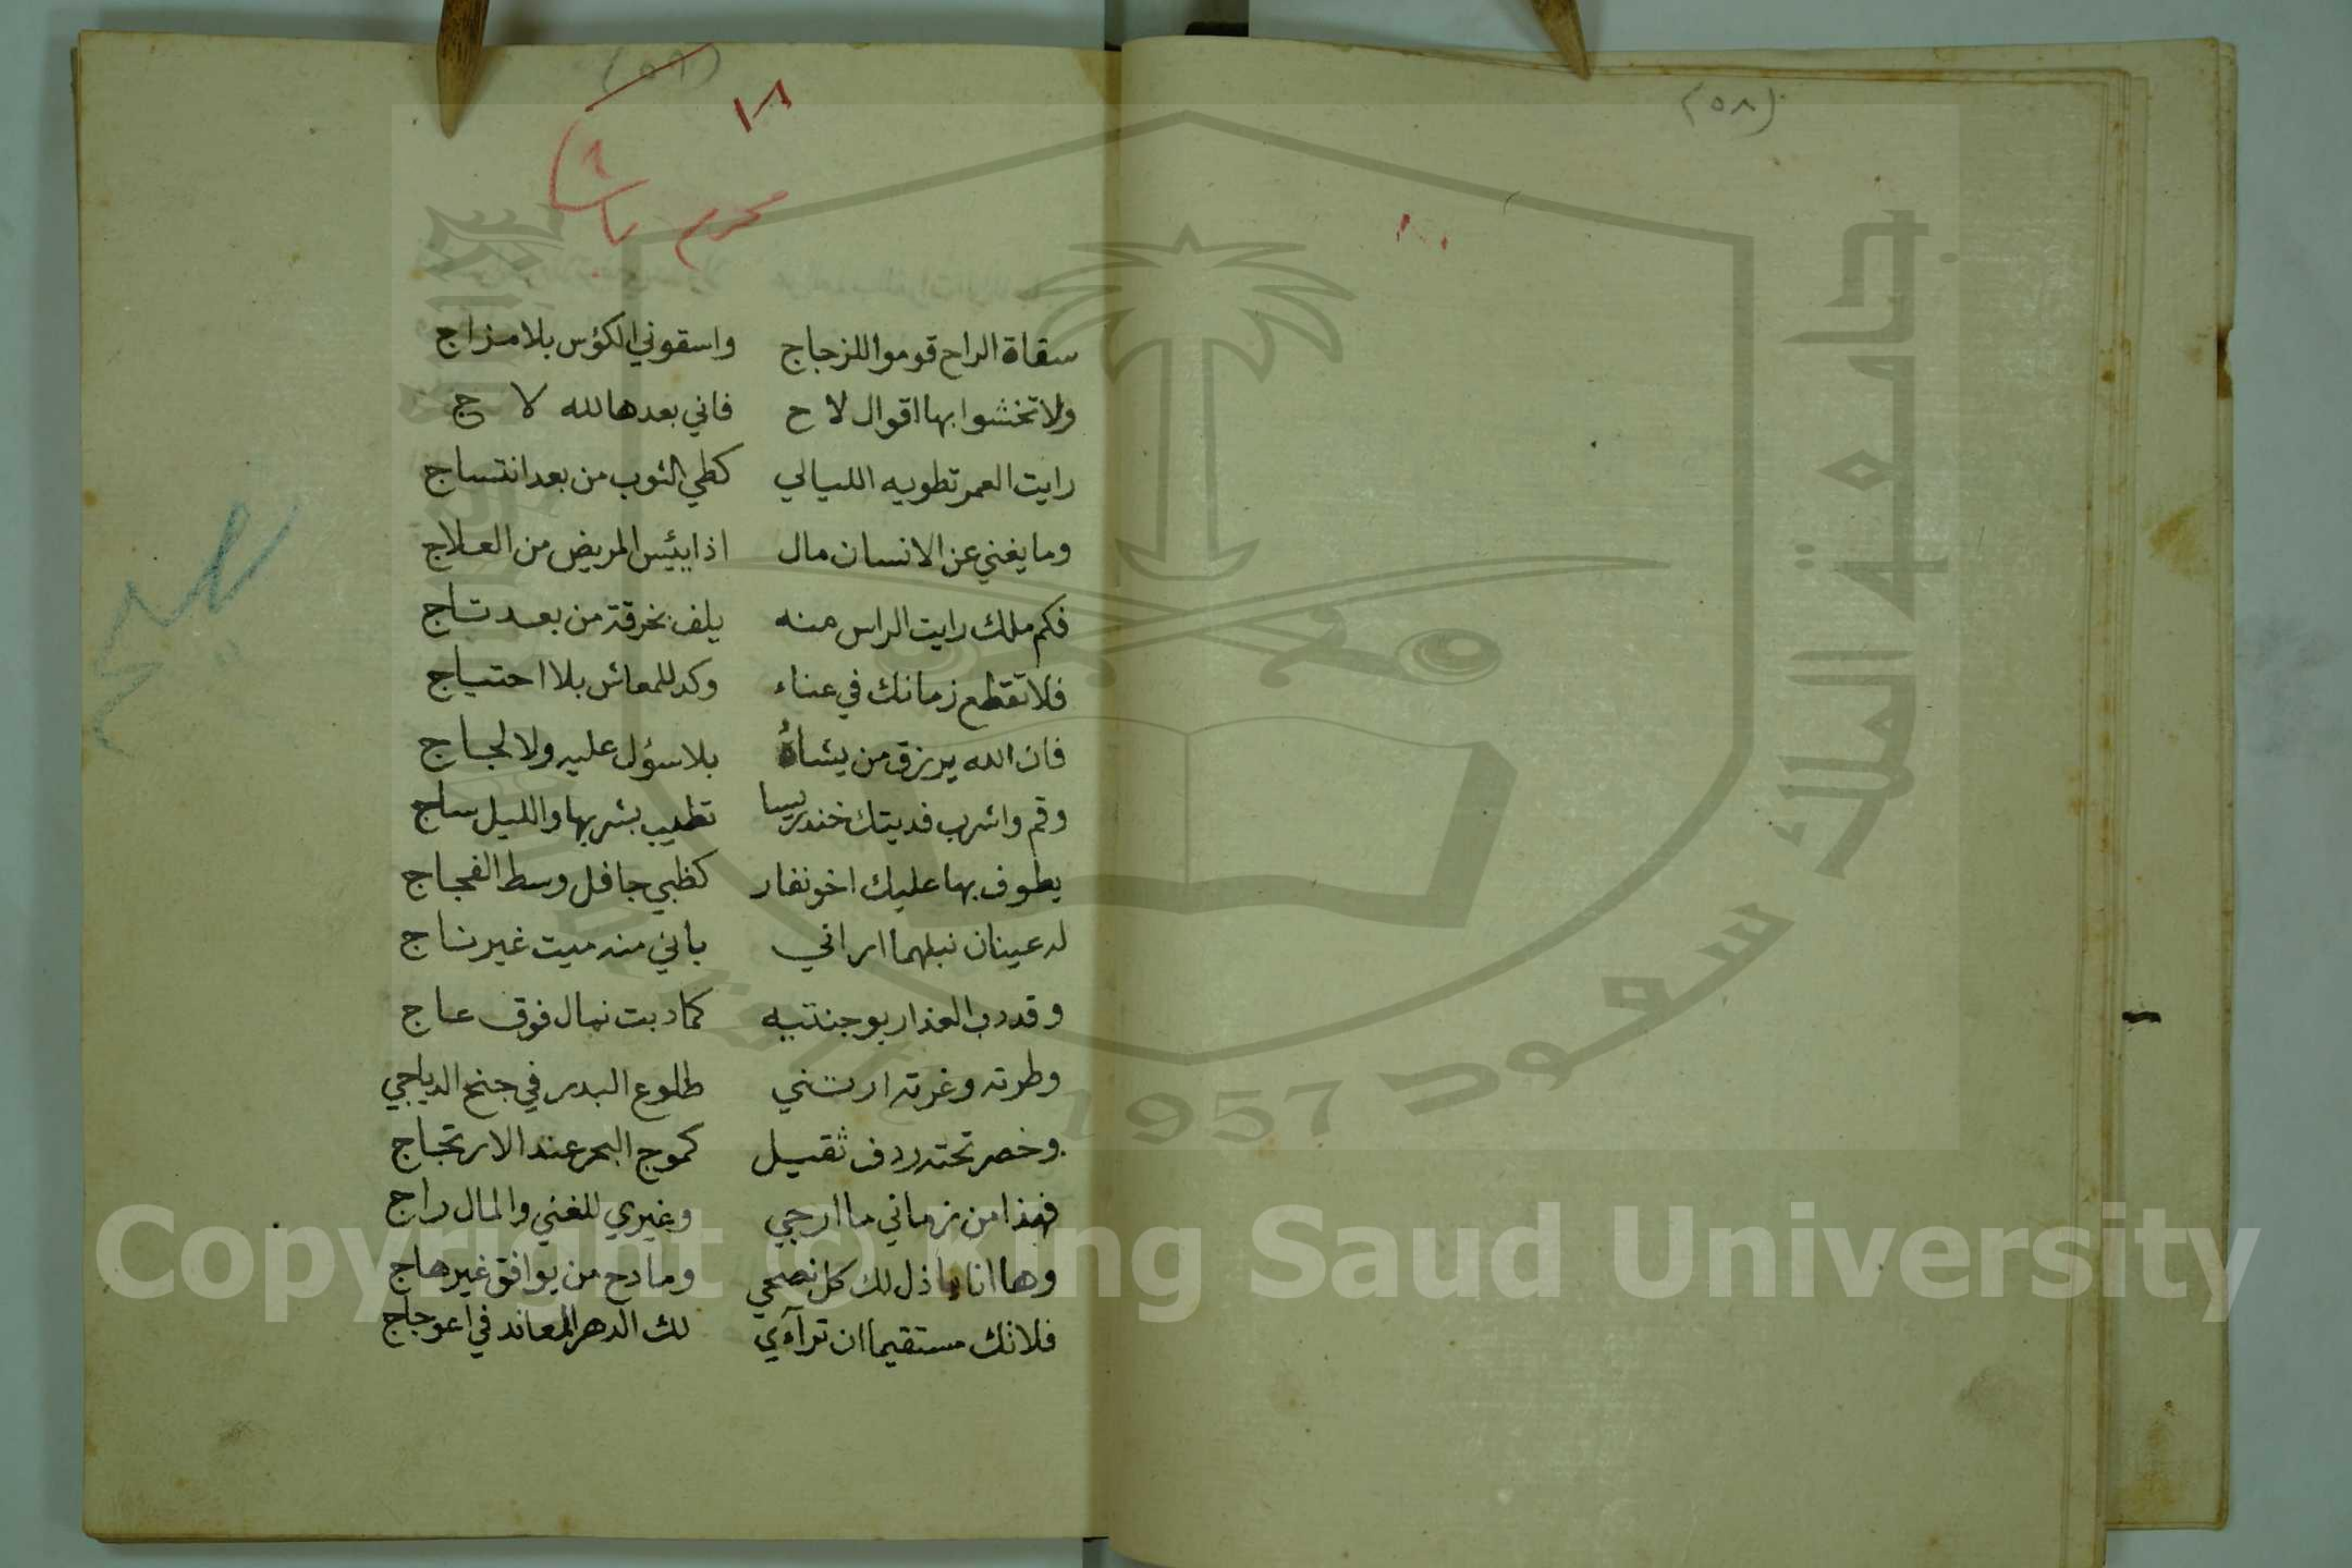 (٥٨)
سقاة الراح قوموا للزجاج واسقوني الكؤس بلا مزاج
ولا تخشوا بها اقوال لاح فاني بعدها لله لا ج
رايت العمر تطويه الليالي كطي الثوب من بعد انتساج
وما يغني عن الانسان مال اذا يئيس المريض من العلاج
فكم ملك رايت الراس منه يلف بخرقة من بعد تاج
فلا تقطع زمانك في عناء وكد للمعاش بلا احتياج
فان الله يرزق من يشاءُ بلا سؤل عليه ولا لجاج
وقم واشرب فديتك خندريسا تطيب بشربها والليل ساج
يطوف بها عليك اخو نفار كظبي جافل وسط الفجاج
له عينان نبلهما اراني باني منه ميت غير ناج
وقد دب العذار بوجنتيه كما دبت نمال فوق عاج
وطرته وغرته ارتني طلوع البدر في جنح الدياجي
وخصر تحته ردف ثقيل كموج البحر عند الارتجاج
فهذا من زماني ما ارجي وغيري للغني والمال راج
وها انا باذل لك كل نصحي ومادح من يوافق غير هاج
فلا تك مستقيما ان ترآءي لك الدهر المعاند في اعوجاج
جامعة الملك سعود
1957
Copyright © King Saud University